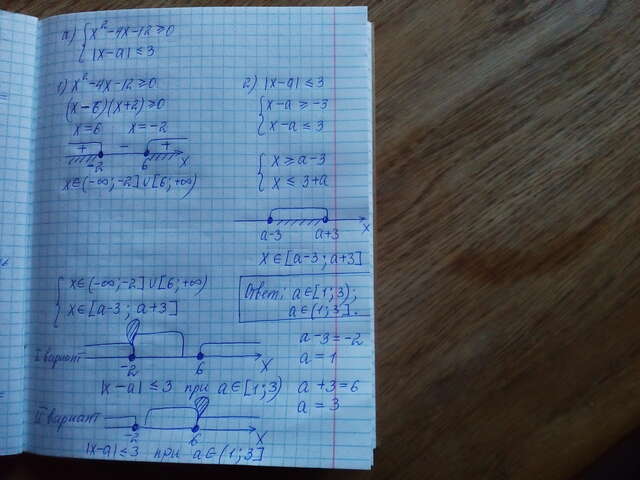 а) { x² - 4x - 12 ≥ 0
|x - a| ≤ 3
1) x² - 4x - 12 ≥ 0
(x - 6)(x + 2) ≥ 0
x = 6 x = -2
+ - +
-2 6 x
x ∈ (-∞; -2] ∪ [6; +∞)
2) |x - a| ≤ 3
{ x - a ≥ -3
x - a ≤ 3
{ x ≥ a - 3
x ≤ 3 + a
a-3 a+3 x
x ∈ [a - 3; a + 3]
{ x ∈ (-∞; -2] ∪ [6; +∞)
x ∈ [a - 3; a + 3]
Ответ: a ∈ [1; 3);
a ∈ (1; 3].
I вариант
-2 6 x
a - 3 = -2
a = 1
|x - a| ≤ 3 при a ∈ [1; 3)
a + 3 = 6
a = 3
II вариант
-2 6 x
|x - a| ≤ 3 при a ∈ (1; 3]